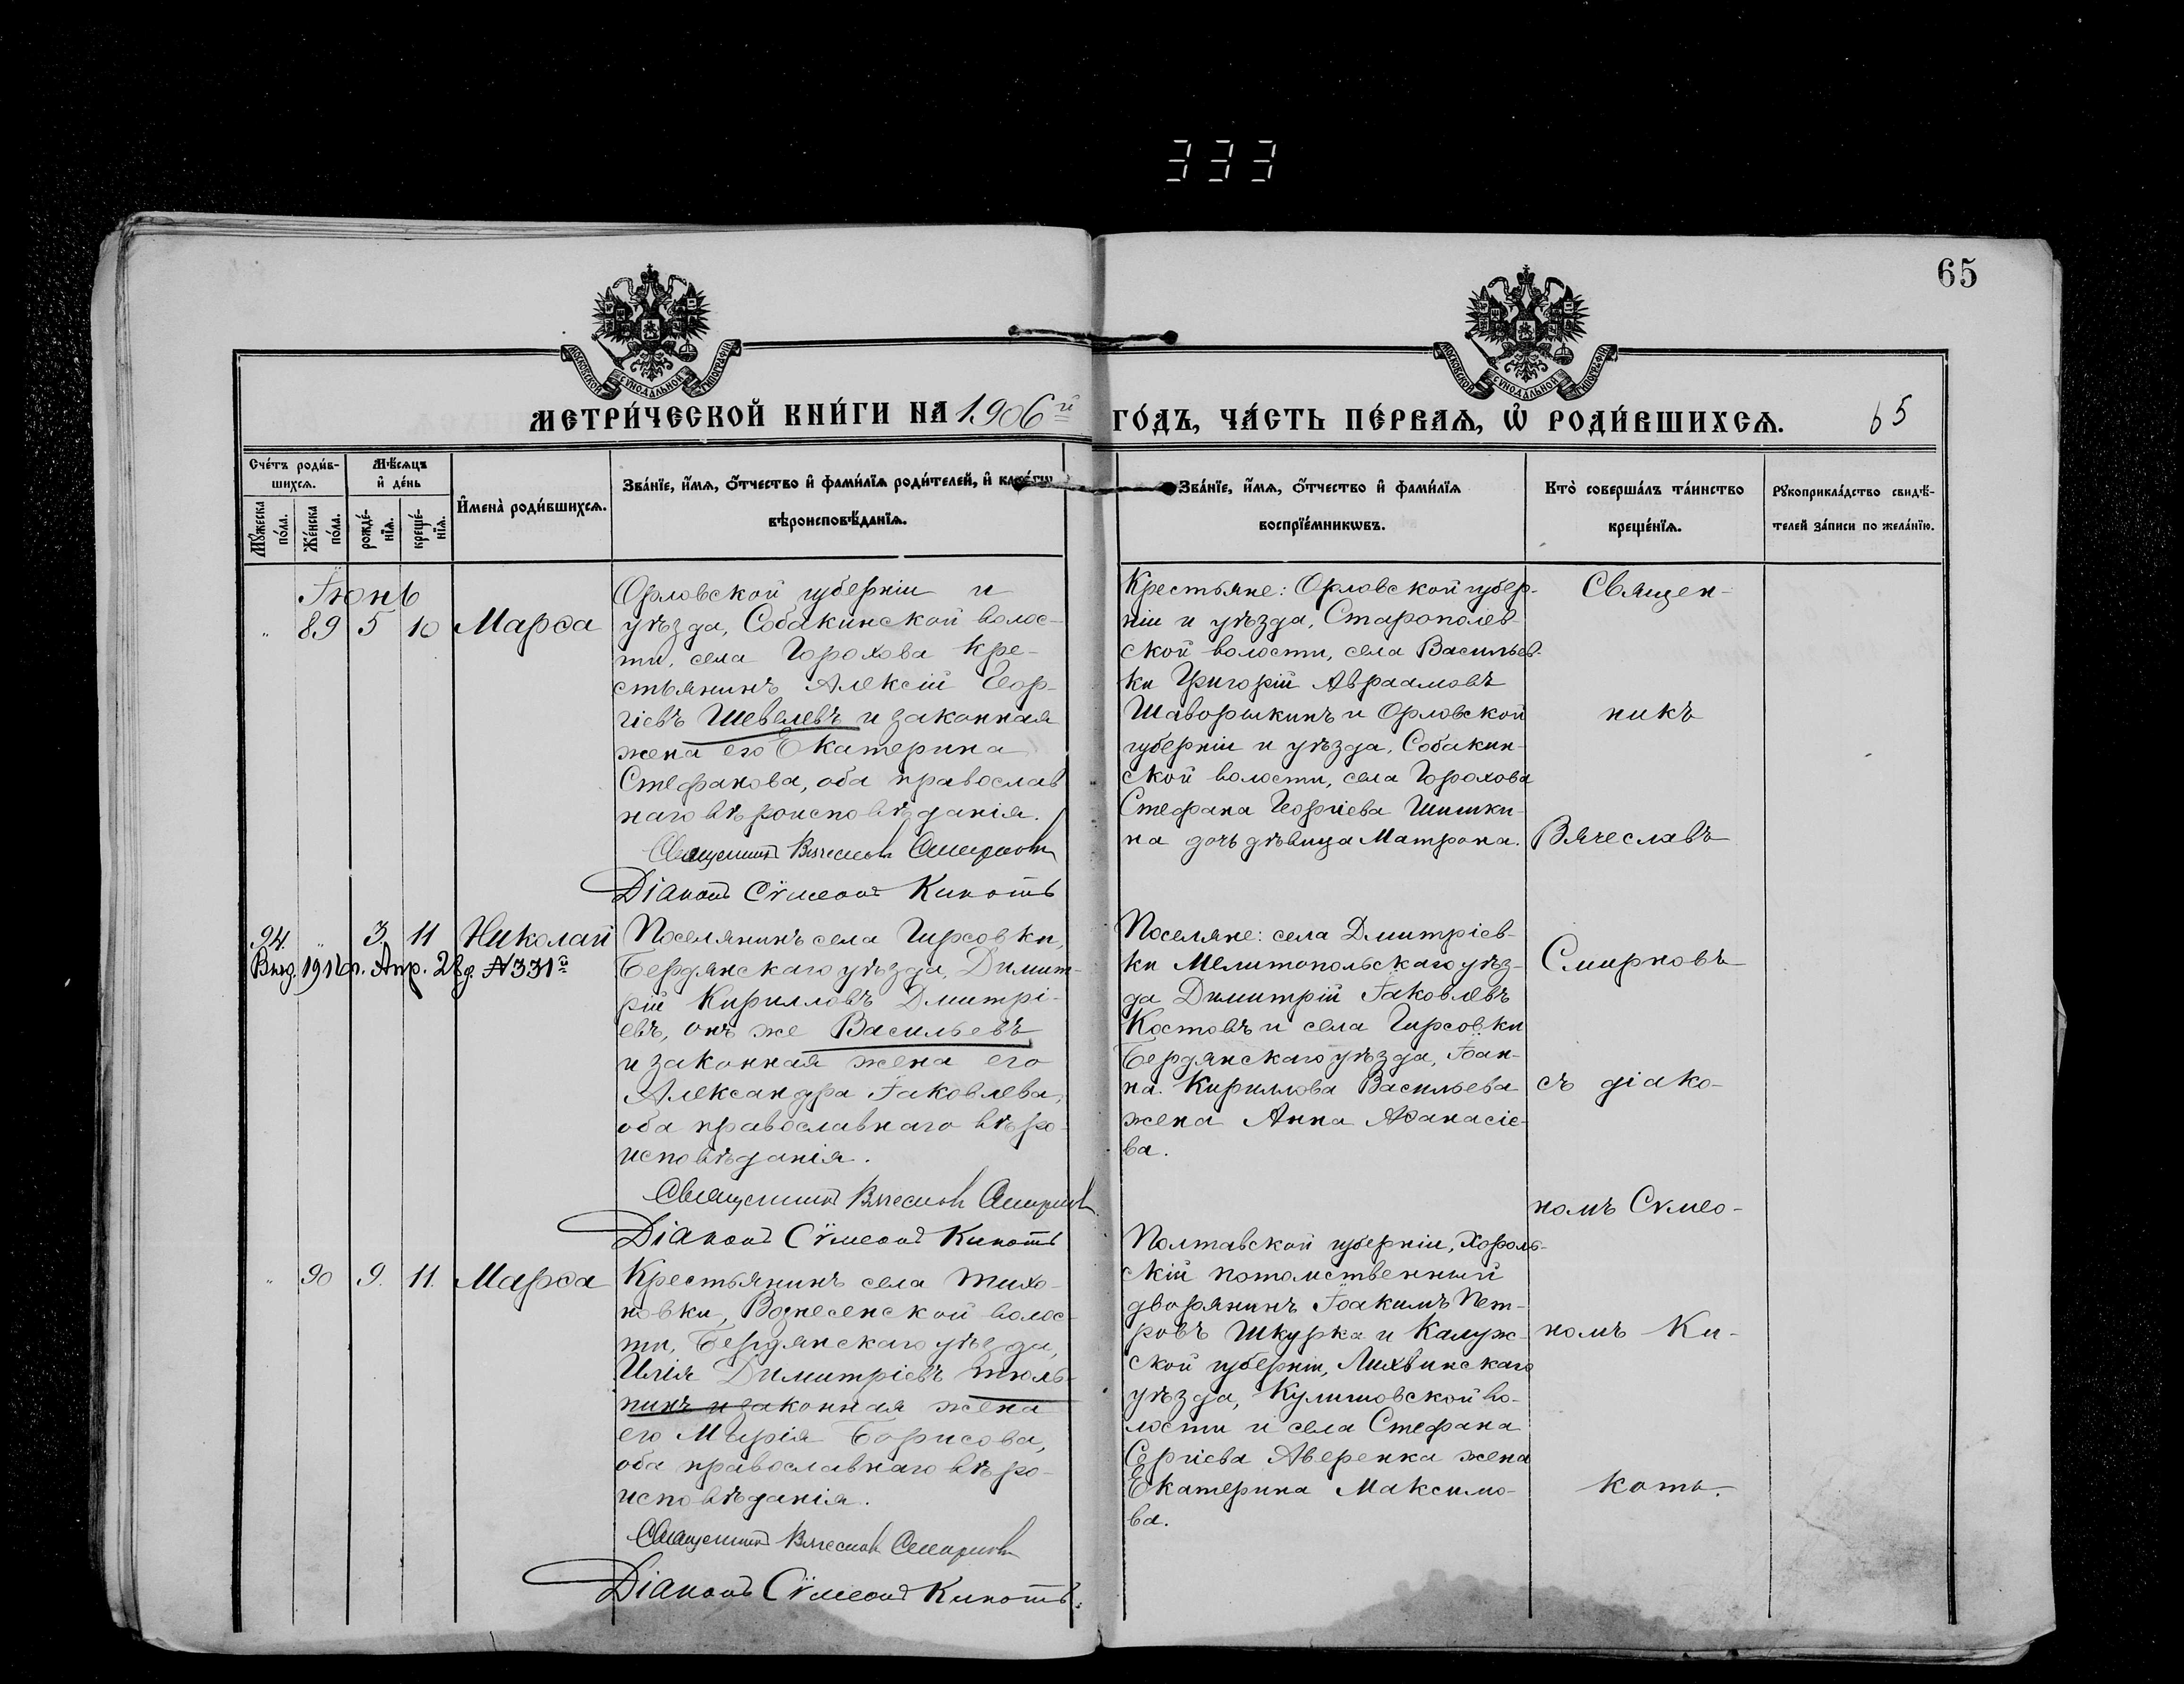 333
65
МОСКОВСКОЙ СѴНОДАЛЬНОЙ ТИПОГРАФІИ
МОСКОВСКОЙ СѴНОДАЛЬНОЙ ТИПОГРАФІИ
МЕТРИ́ЧЕСКОЙ КНИ́ГИ НА 1906й ГО́ДЪ, ЧА́СТЬ ПЕ́РВАѦ, Ѡ҆ РОДИ́ВШИХСѦ.
65
Сче́тъ роди́в-
шихсѧ.
Мꙋ́жеска по́ла.
Же́нска по́ла.
Мѣ́сѧцъ
и҆ де́нь
рожде́-
нїѧ.
креще́-
нїѧ.
И҆мена̀ роди́вшихсѧ.
Зва́нїе, и҆́мѧ, ѻ҆́тчество и҆ фами́лїѧ роди́телей, и҆
вѣроисповѣ́данїѧ.
Зва́нїе, и҆́мѧ, ѻ҆́тчество и҆ фами́лїѧ
воспрїе́мникѡвъ.
Кто̀ соверша́лъ та́инство
креще́нїѧ.
Рꙋкоприкла́дство свидѣ́-
телей за́писи по жела́нїю.
Іюнь
" 89 5 10 Марѳа
Орловской губерніи и
уѣзда, Собакинской волос-
ти, села Горохова кре-
стьянинъ Алексій Геор-
гіевъ Шевелевъ и законная
жена его Екатерина
Стефанова, оба православ
наго вѣроисповѣданія.
Священникъ Вячеславъ Смирновъ
Діаконъ Сѵмеонъ Кикоть
Крестьяне: Орловской губер-
ніи и уѣзда, Старополев-
ской волости, села Васильев-
ки Григорій Авраамовъ
Шаворыкинъ и Орловской
губерніи и уѣзда, Собакин-
ской волости, села Горохова
Стефана Георгіева Шишки-
на дочь дѣвица Матрона.
94. " 3. 11 Николай
Выд. 1916 г. Апр. 28 д. №331й
Поселянинъ села Гирсовки,
Бердянскаго уѣзда, Димит-
рій Кирилловъ Дмитрі-
евъ, онъ же Васильевъ
и законная жена его
Александра Іаковлева,
оба православнаго вѣро-
исповѣданія.
Священникъ Вячеславъ Смирновъ
Діаконъ Сѵмеонъ Кикоть
Поселяне: села Дмитріев-
ки Мелитопольскаго уѣз-
да Димитрій Іаковлевъ
Костовъ и села Гирсовки
Бердянскаго уѣзда, Іоан-
на Кириллова Васильева
жена Анна Аѳанасіе-
ва.
" 90 9. 11. Марѳа
Крестьянинъ села Тихо-
новки, Вознесенской волос-
ти, Бердянскаго уѣзда,
Илія Димитріевъ Тюль-
пинъ и законная жена
его Марія Борисова,
оба православнаго вѣро-
исповѣданія.
Священникъ Вячеславъ Смирновъ
Діаконъ Сѵмеонъ Кикоть.
Полтавской губерніи, Хороль-
скій потомственный
дворянинъ Іоакимъ Пет-
ровъ Шкурка и Калуж-
ской губерніи, Лихвинскаго
уѣзда, Кулишовской во-
лости и села Стефана
Сергіева Аверенка жена
Екатерина Максимо-
ва.
Священ-
никъ
Вячеславъ
Смирновъ
съ діако-
номъ Сѵмео-
номъ Ки-
коть.